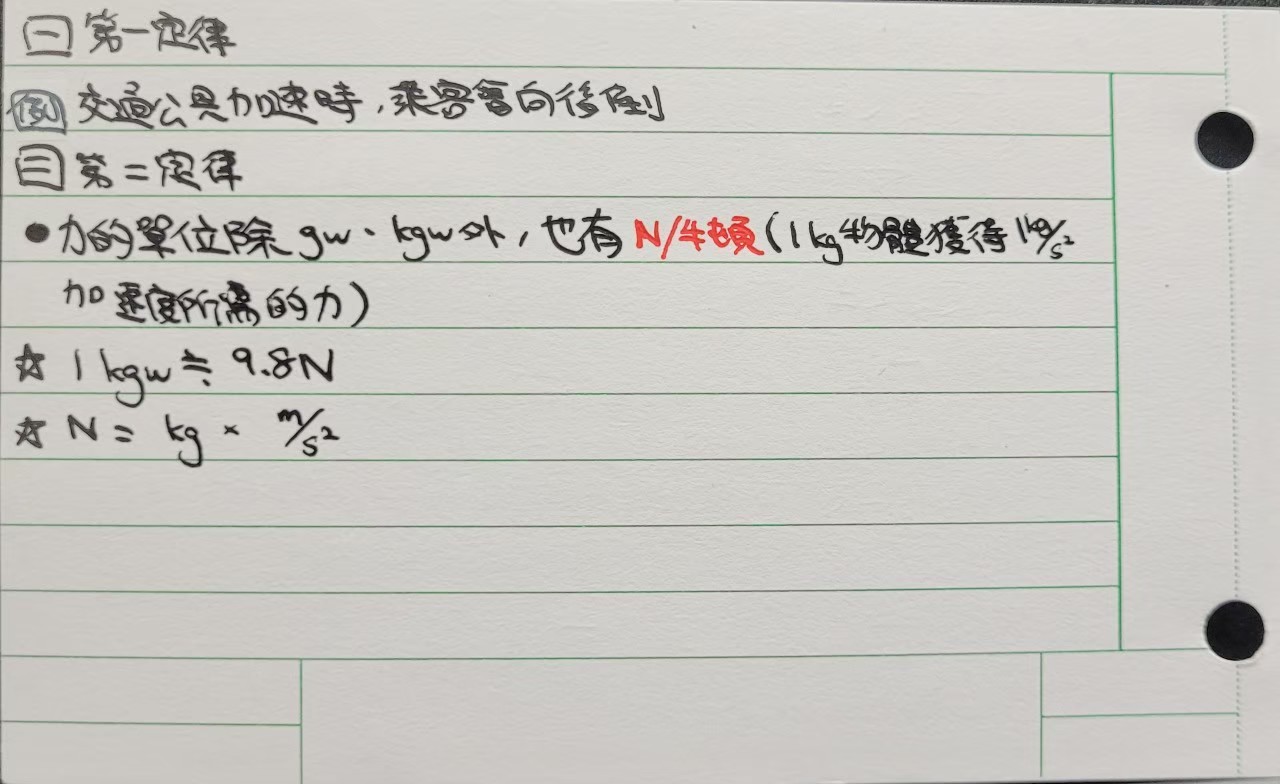 ㊀ 第一定律
例 交通公具加速時,乘客會向後倒
㊁ 第二定律
●力的單位除gw、kgw外,也有N/牛頓(1kg物體獲得1kg/s²
加速度所需的力)
☆ 1kgw≒9.8N
☆ N = kg × m/s²